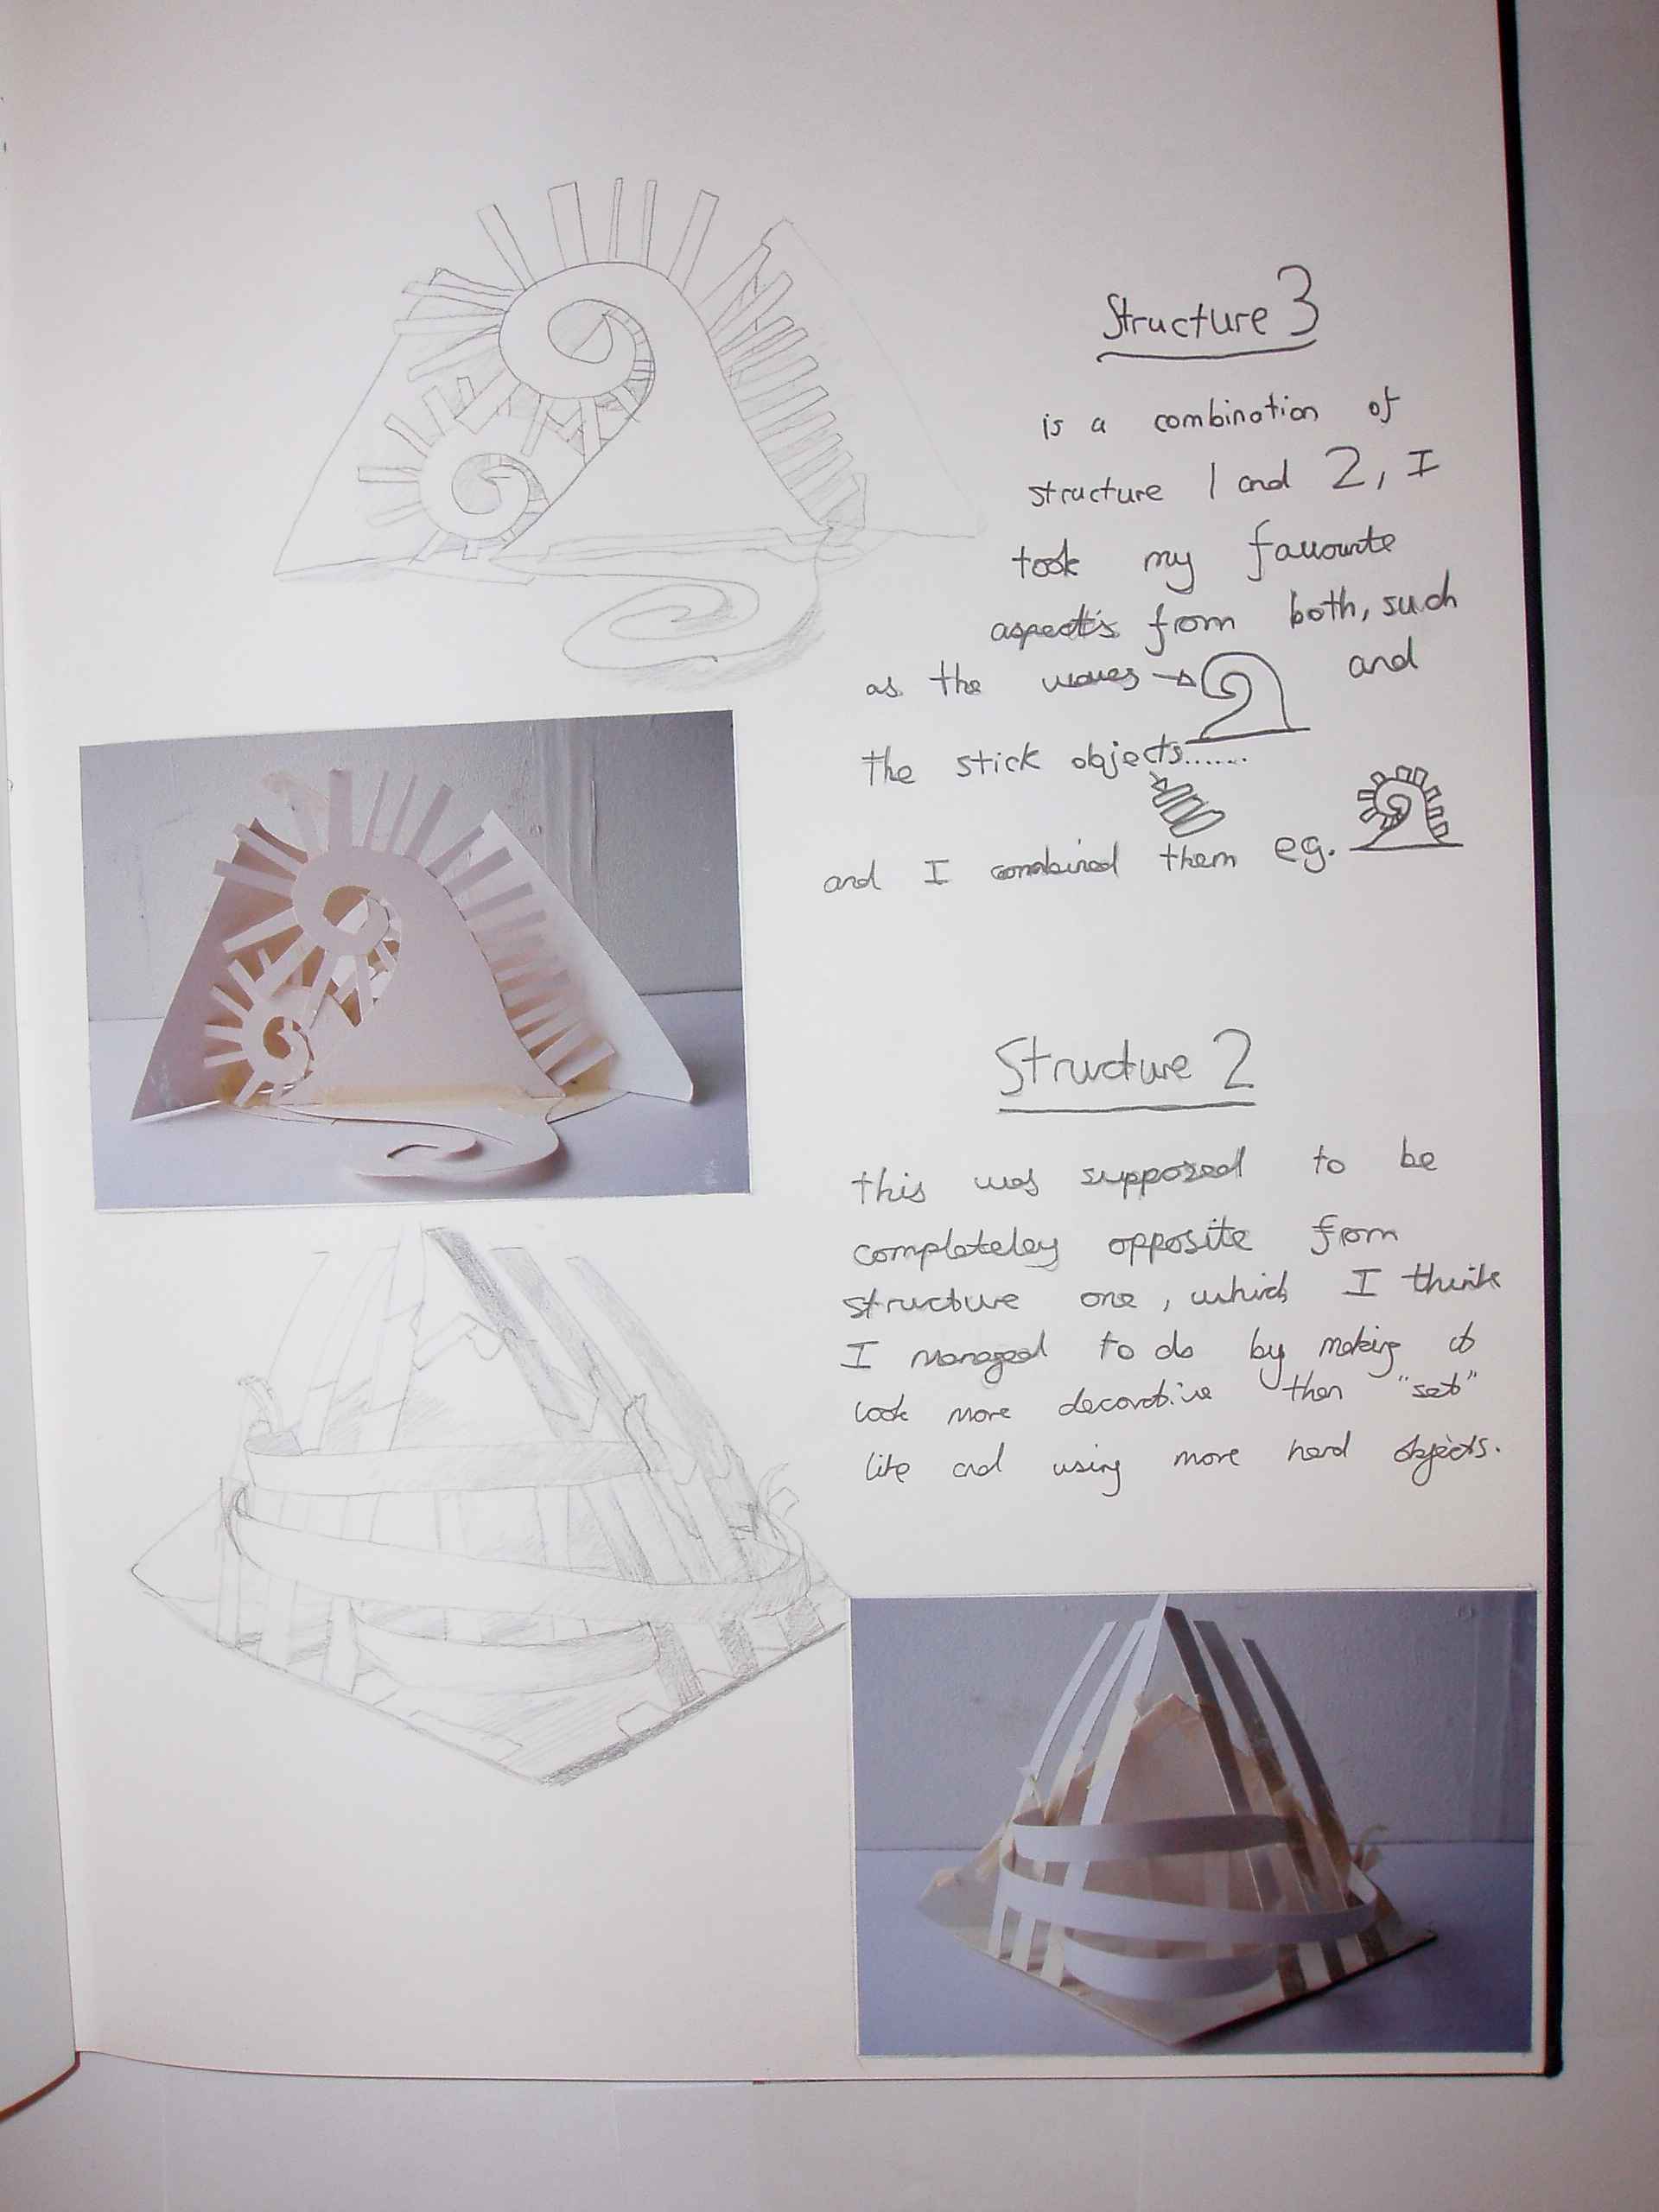 Structure 3
is a combination of
structure 1 and 2, I
took my favourite
aspects from both, such
as the waves and
the stick objects......
and I combined them eg.
Structure 2
this was supposed to be
completeley opposite from
structure one, which I think
I managed to do by making it
look more decorative then "set"
like and using more hard objects.